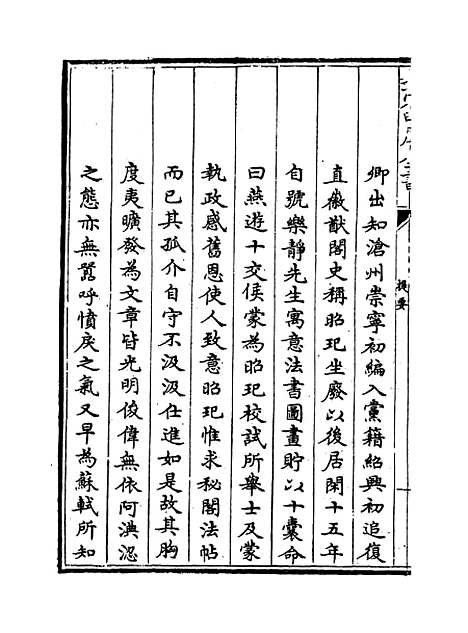 卿出知滄州崇寧初編入黨籍紹興初追復
直徽猷閣史稱昭玘坐廢以後居閑十五年
自號樂靜先生寓意法書圖畫貯以十囊命
曰燕遊十交侯蒙為昭玘校試所舉士及蒙
執政感舊恩使人致意昭玘惟求秘閣法帖
而已其孤介自守不汲汲仕進如是故其胸
度夷曠發為文章皆光明俊偉無依阿淟涊
之態亦無嚚呼憤戾之氣又早為蘇軾所知
提要